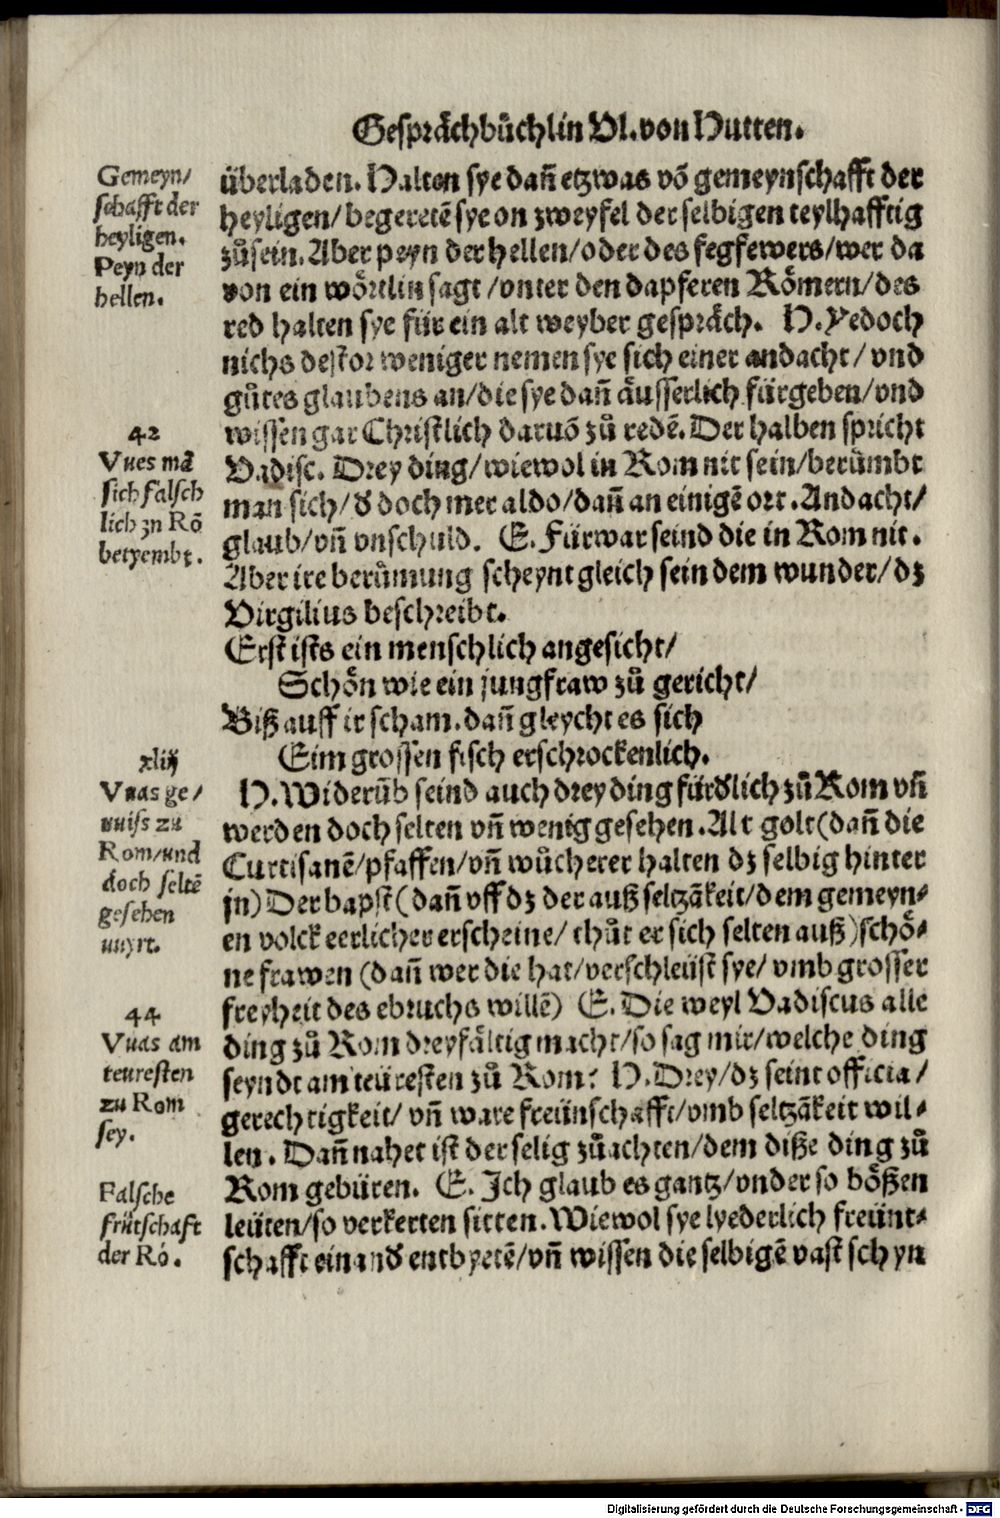 Gesprächbůchlin Vl. von Hutten.
Gemeyn/
schafft der
heyligen.
Peyn der
hellen.
überladen. Halten sye dañ etzwas võ gemeynschafft der
heyligen/ begeretẽ sye on zweyfel der selbigen teylhafftig
zůsein. Aber peyn der hellen/ oder des fegfewers/ wer da
von ein wörtlin sagt / vnter den dapferen Römern/ des
red halten sye für ein alt weyber gespräch. H. Yedoch
nichs destor weniger nemen sye sich einer andacht / vnd
gůtes glaubens an/ die sye dañ äusserlich fürgeben/ vnd
wissen gar Christlich daruõ zů redẽ. Der halben spricht
42
Vues mã
sich falsch
lich zu Rõ
betyembt.
Vadisc. Drey ding/ wiewol in Rom nit sein/ berůmbt
man sich/ d̕ doch mer aldo/ dañ an einigẽ ort. Andacht/
glaub/ vñ vnschuld. E. Fürwar seind die in Rom nit.
Aber ire berůmung scheynt gleich sein dem wunder/ dz
Virgilius beschreibt.
Erst ists ein menschlich angesicht/
Schön wie ein jungfraw zů gericht/
Biß auff ir scham. dañ gleycht es sich
Eim grossen fisch erschrockenlich.
xliij
Vuas ge/
wuiss zu
Rom/und
doch seltẽ
gesehen
wuyrt.
H. Widerũb seind auch drey ding fürd̕lich zů Rom vñ
werden doch selten vñ wenig gesehen. Alt golt (dañ die
Curtisanẽ/ pfaffen/ vñ wůcherer halten dz selbig hinter
jn) Der bapst (dañ vff dz der auß seltzãkeit/ dem gemeyn-
en volck eerlicher erscheine/ thůt er sich selten auß) schö-
ne frawen (dañ wer die hat/ verschleüst sye/ vmb grosser
freyheit des ebruchs willẽ) E. Die weyl Vadiscus alle
44
Vuas am
teuresten
zu Rom
sey.
ding zů Rom dreyfältig macht/ so sag mir/ welche ding
seyndt am teüresten zů Rom? H. Drey/ dz seint officia /
gerechtigkeit/ vñ ware freünschafft/ vmb seltzãkeit wil-
len. Dañ nahet ist der selig zůachten/ dem diße ding zů
Falsche
frütschaft
der Ró.
Rom gebüren. E. Ich glaub es gantz/ vnder so bößen
leüten/ so verkerten sitten. Wiewol sye lyederlich freünt-
schafft einand̕ entbyetẽ/ vñ wissen die selbigẽ vast schyn
Digitalisierung gefördert durch die Deutsche Forschungsgemeinschaft - DFG